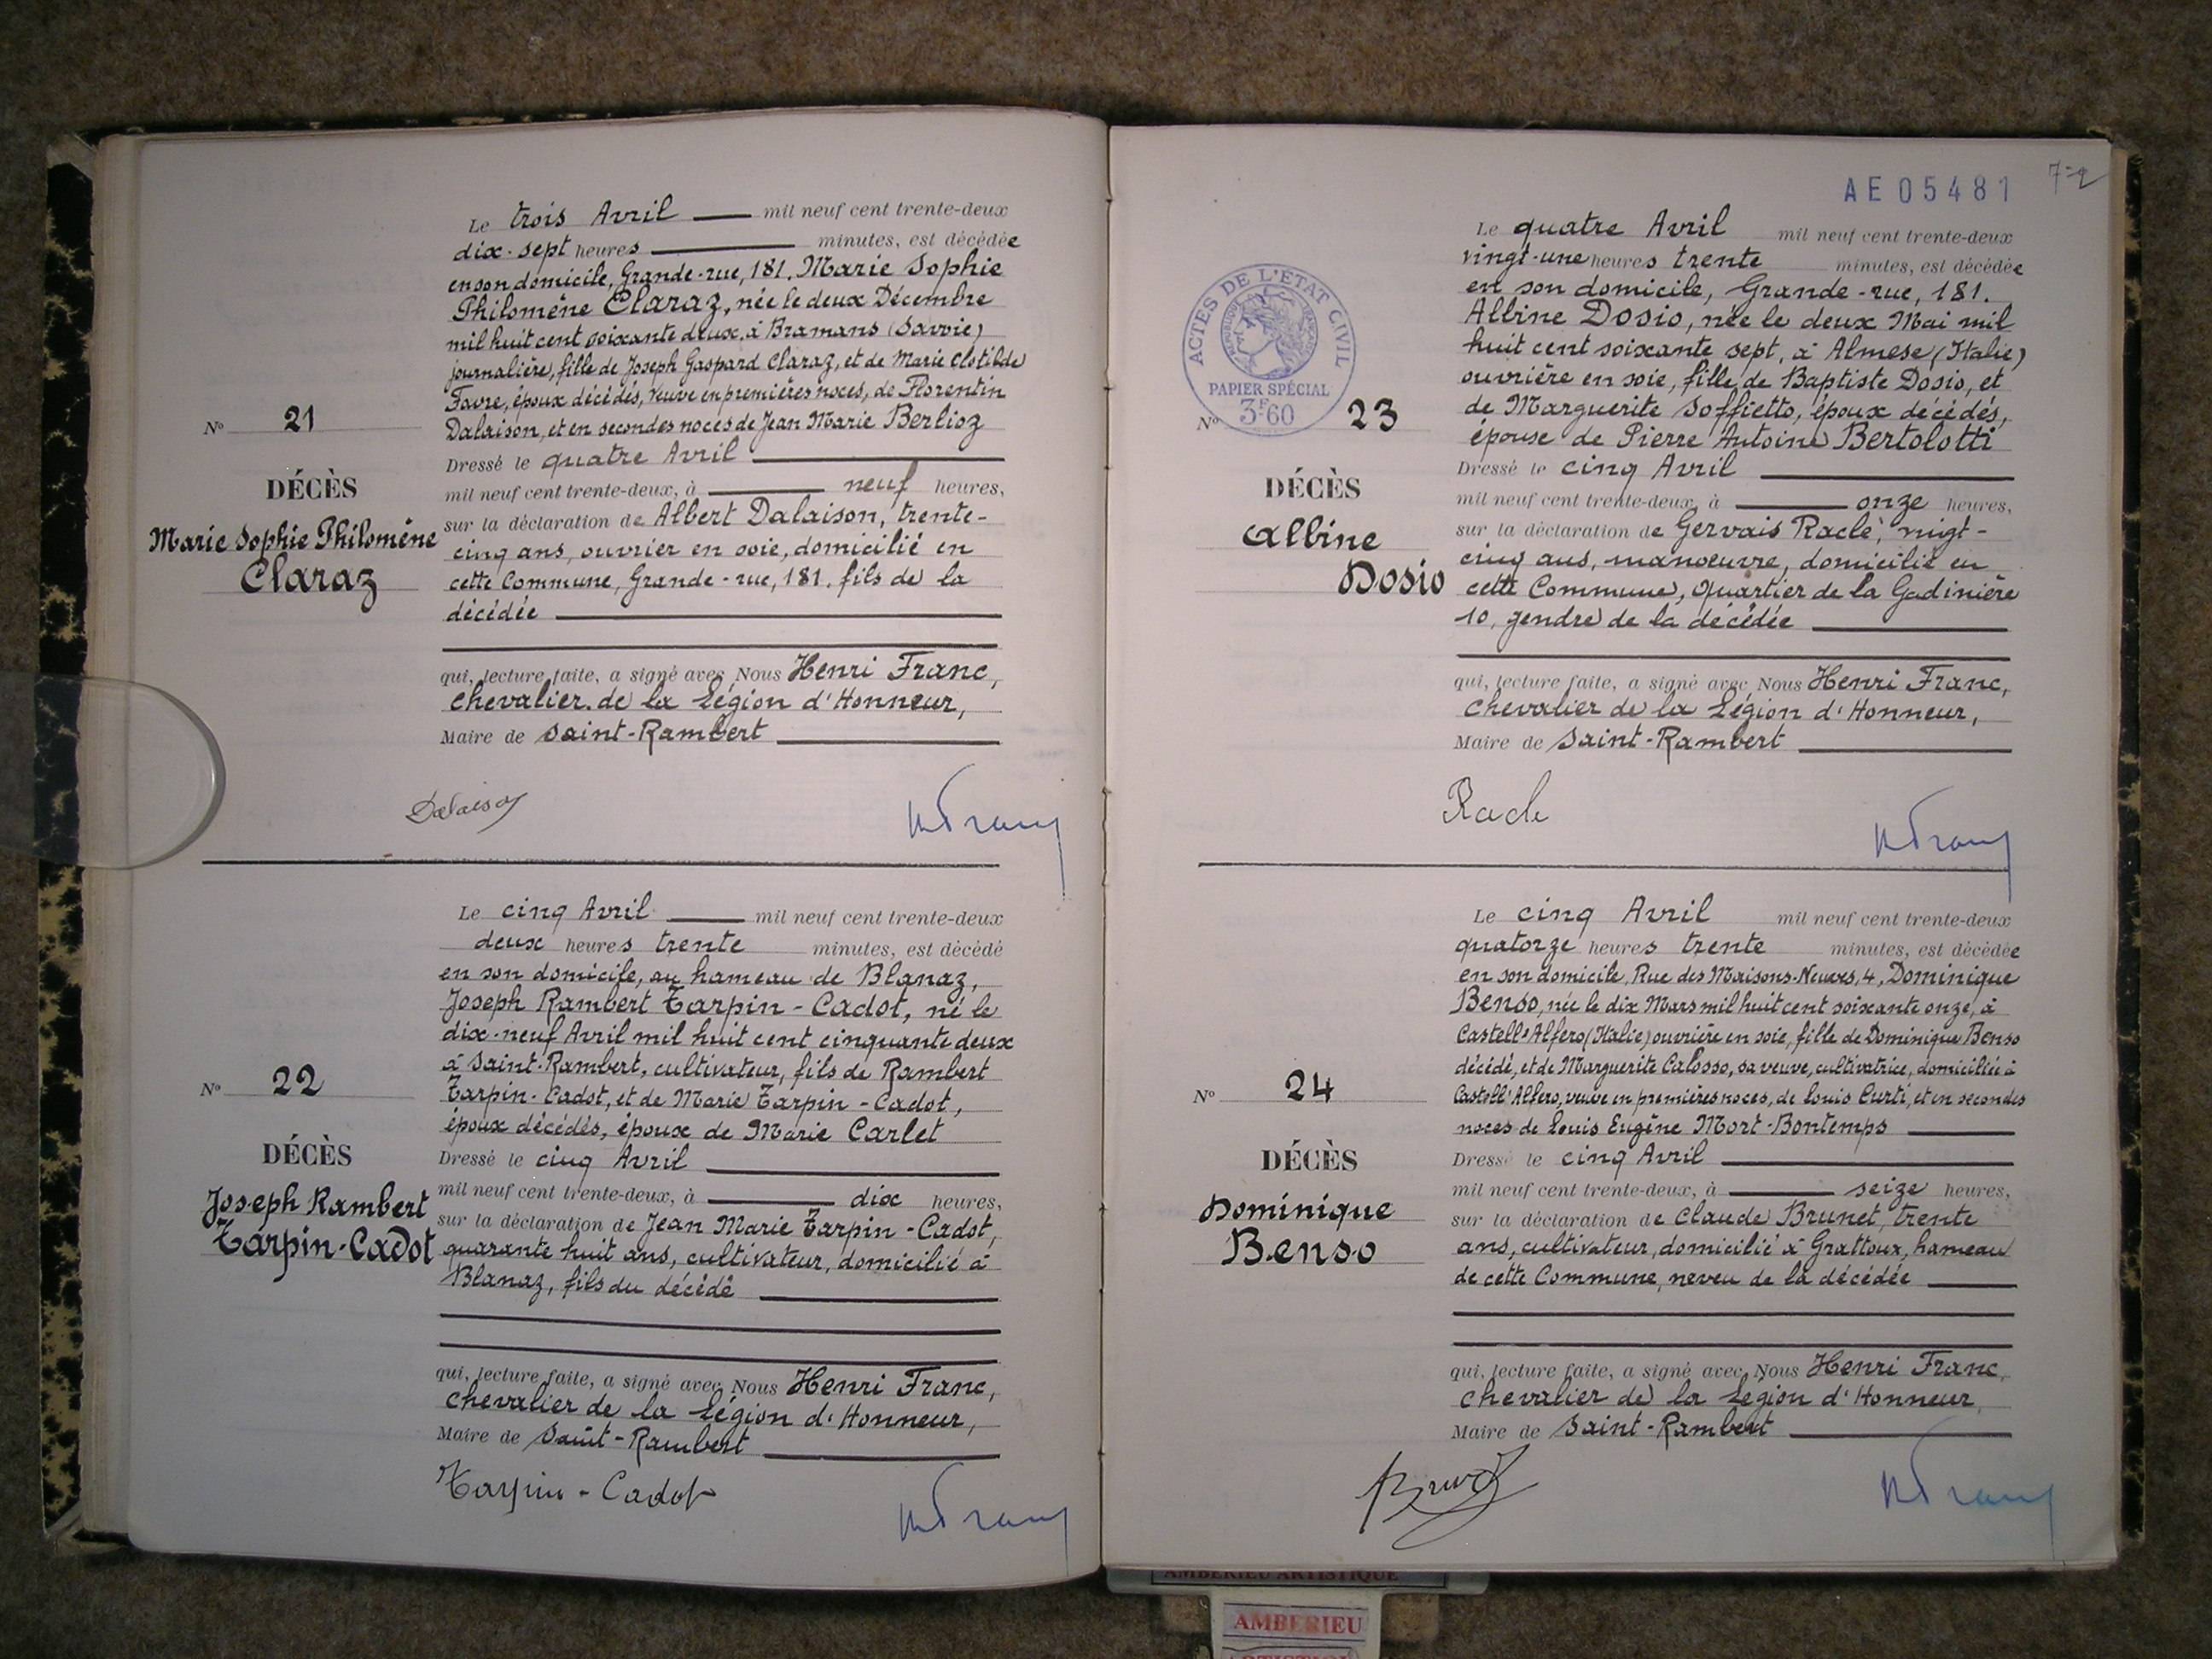 Le trois Avril mil neuf cent trente-deux
dix-sept heures minutes, est décédée
en son domicile, Grande-rue, 181. Marie Sophie
Philomène Claraz, née le deux Décembre
mil huit cent soixante deux, à Bramans (Savoie)
journalière, fille de Joseph Gaspard Claraz, et de Marie Clotilde
Favre, époux décédés, veuve en premières noces, de Florentin
Dalaison, et en secondes noces de Jean Marie Berlioz
Dressé le quatre Avril
mil neuf cent trente-deux, à neuf heures,
sur la déclaration de Albert Dalaison, trente-
cinq ans, ouvrier en soie, domicilié en
cette Commune, Grande-rue, 181. fils de la
décédée
qui, lecture faite, a signé avec Nous Henri Franc,
Chevalier de la Légion d'Honneur,
Maire de Saint-Rambert
N° 21
DÉCÈS
Marie Sophie Philomène
Claraz
Dalaison
HFranc
Le cinq Avril mil neuf cent trente-deux
deux heures trente minutes, est décédé
en son domicile, au hameau de Blanaz,
Joseph Rambert Tarpin-Cadot, né le
dix-neuf Avril mil huit cent cinquante deux
à Saint-Rambert, cultivateur, fils de Rambert
Tarpin-Cadot, et de Marie Tarpin-Cadot,
époux décédés, époux de Marie Carlet
Dressé le cinq Avril
mil neuf cent trente-deux, à dix heures,
sur la déclaration de Jean Marie Tarpin-Cadot,
quarante huit ans, cultivateur, domicilié à
Blanaz, fils du décédé
qui, lecture faite, a signé avec Nous Henri Franc,
Chevalier de la Légion d'Honneur,
Maire de Saint-Rambert
N° 22
DÉCÈS
Joseph Rambert
Tarpin-Cadot
Tarpin-Cadot
HFranc
AE05481
72
ACTES DE L'ÉTAT CIVIL
RÉPUBLIQUE FRANÇAISE
PAPIER SPÉCIAL
3F60
Le quatre Avril mil neuf cent trente-deux
vingt-une heures trente minutes, est décédée
en son domicile, Grande-rue, 181.
Albine Dosio, née le deux Mai mil
huit cent soixante sept, à Almese (Italie)
ouvrière en soie, fille de Baptiste Dosio, et
de Marguerite Soffietto, époux décédés,
épouse de Pierre Antoine Bertolotti
Dressé le cinq Avril
mil neuf cent trente-deux, à onze heures,
sur la déclaration de Gervais Racle, vingt-
cinq ans, manoeuvre, domicilié en
cette Commune, Quartier de la Gadinière
10, gendre de la décédée
qui, lecture faite, a signé avec Nous Henri Franc,
Chevalier de la Légion d'Honneur,
Maire de Saint-Rambert
N° 23
DÉCÈS
Albine
Dosio
Racle
HFranc
Le cinq Avril mil neuf cent trente-deux
quatorze heures trente minutes, est décédée
en son domicile, Rue des Maisons-Neuves, 4, Dominique
Benso, née le dix Mars mil huit cent soixante onze, à
Castell'Alfero (Italie) ouvrière en soie, fille de Dominique Benso
décédé, et de Marguerite Calosso, sa veuve, cultivatrice, domiciliée à
Castell'Alfero, veuve en premières noces, de Louis Curti, et en secondes
noces de Louis Eugène Mort-Bontemps
Dressé le cinq Avril
mil neuf cent trente-deux, à seize heures,
sur la déclaration de Claude Brunet, trente
ans, cultivateur, domicilié à Grattoux, hameau
de cette Commune, neveu de la décédée
qui, lecture faite, a signé avec Nous Henri Franc,
Chevalier de la Légion d'Honneur,
Maire de Saint-Rambert
N° 24
DÉCÈS
Dominique
Benso
Brunet
HFranc
AMBERIEU ARTISTIQUE
AMBERIEU
ARTISTIQUE